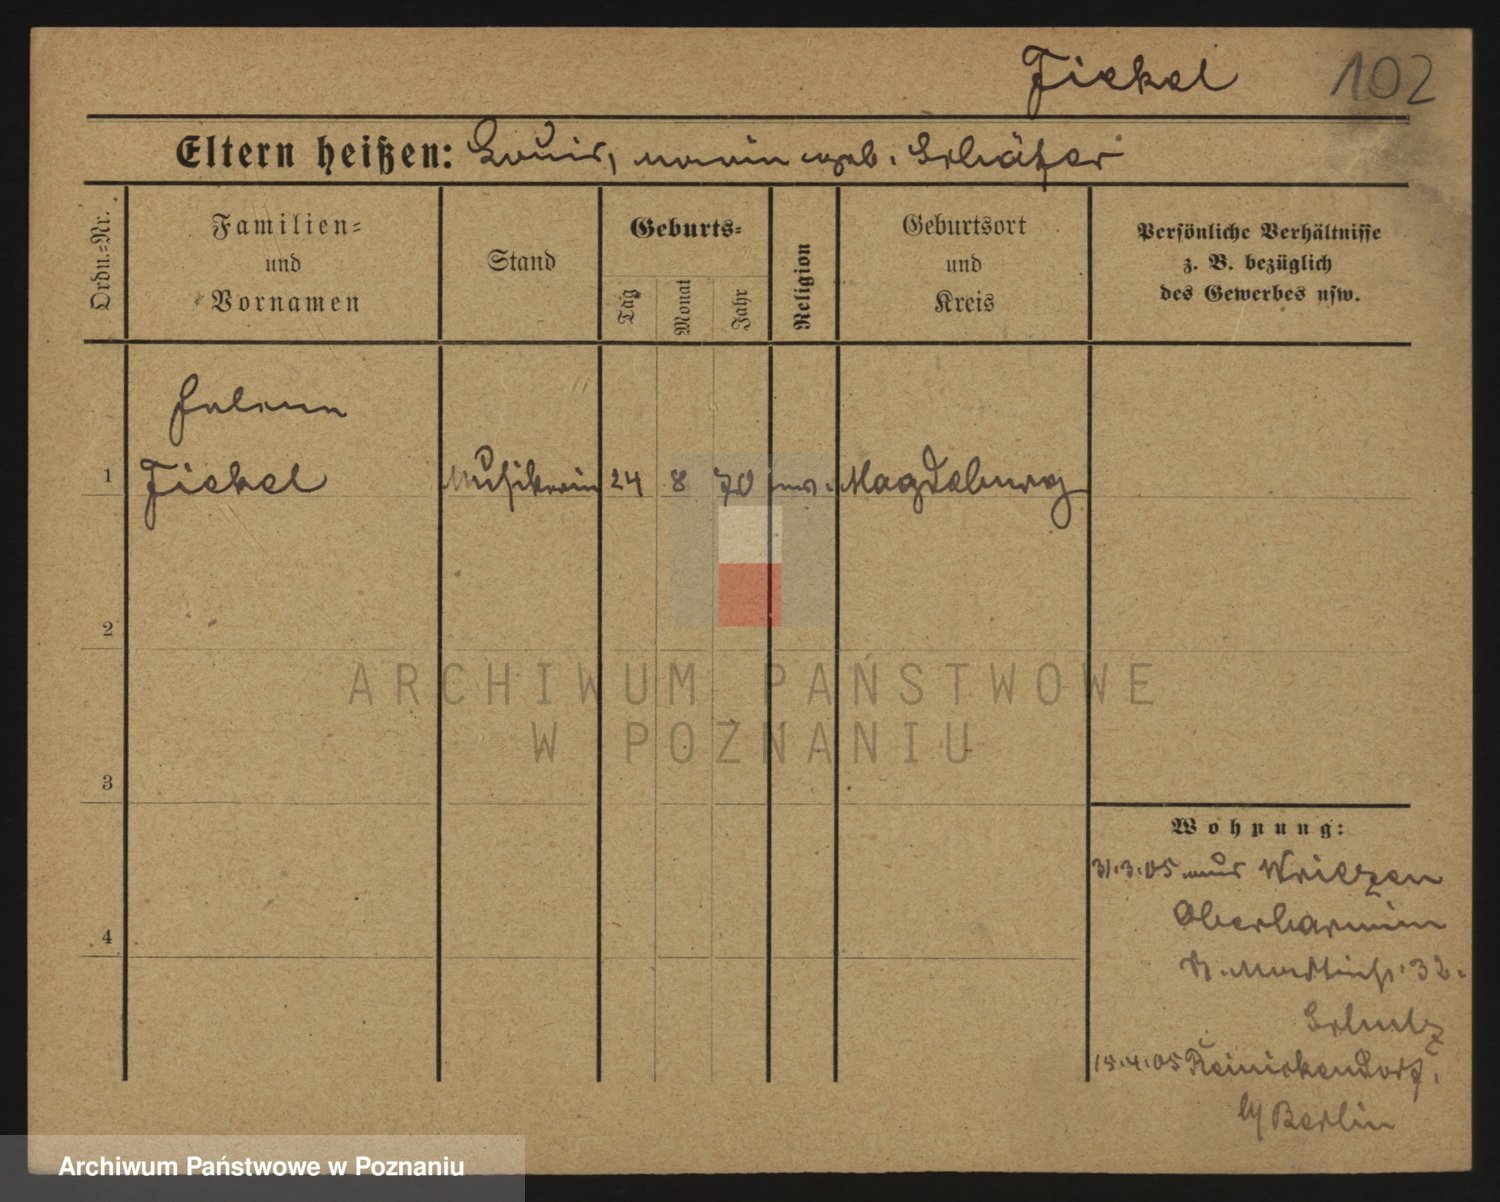 Fickel 102
Eltern heißen: Louis, Marie geb. Schäfer
Ordn.-Nr.
Familien-
und
Vornamen
Stand
Geburts-
Tag
Monat
Jahr
Religion
Geburtsort
und
Kreis
Persönliche Verhältnisse
z. B. bezüglich
des Gewerbes usw.
Helene
1 Fickel Musikerin 24 8 70 Magdeburg
2
ARCHIWUM PAŃSTWOWE
W POZNANIU
3
4
Wohnung:
31.3.05 aus Wriezen
Oberbarnim
32.
Schulz
15.4.05 Reinickendorf
b/ Berlin
Archiwum Państwowe w Poznaniu